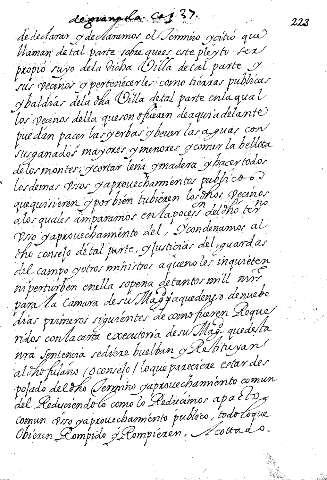 de granada Cap 37.
223
de declarar y declaramos el termino y sitio que
llaman de tal parte sobre que es este pleyto ser
propio suyo de la dicha Villa de tal parte y
sus vecinos y pertenecerles como tierras publicas
y baldias de la dha Villa de tal parte en la qual
los vecinos della que son o fueren de aqui adelante
puedan pacer las yerbas y bever las aguas con
sus ganados mayores y menores y comer la bellota
de los montes, y cortar leña y madera y hacer todos
los demas usos y aprovechamientos publicos
que quisieren y por bien tubieren los dhos vecinos
a los quales amparamos en la posesⁿ del dho terᵐⁿᵒ
uso y aprovechamiento del, y condenamos al
dho consejo de tal parte, y Justicias del, guardas
del campo y otros ministros a que no les inquieten
ni perturben en ella sopena de tantos mill mrs
para la Camara de su Magd y a que dentro de nuebe
dias primeros siguientes de como fueren Reque
ridos con la carta executoria de su Magd que desta
nra sentencia se diere buelban y Restituyan
al dho fulano, o consejo, lo que pareciere estar des
pojado del dho Termino y aprovechamiento comun
del Reduciendolo como lo Reducimos a pasto
comun uso y aprovechamiento publico, todo lo que
Obieren Rompido y Rompieren, Acotado